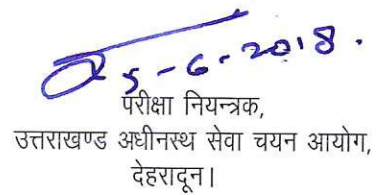 5-6-2018.
परीक्षा नियन्त्रक,
उत्तराखण्ड अधीनस्थ सेवा चयन आयोग,
देहरादून।